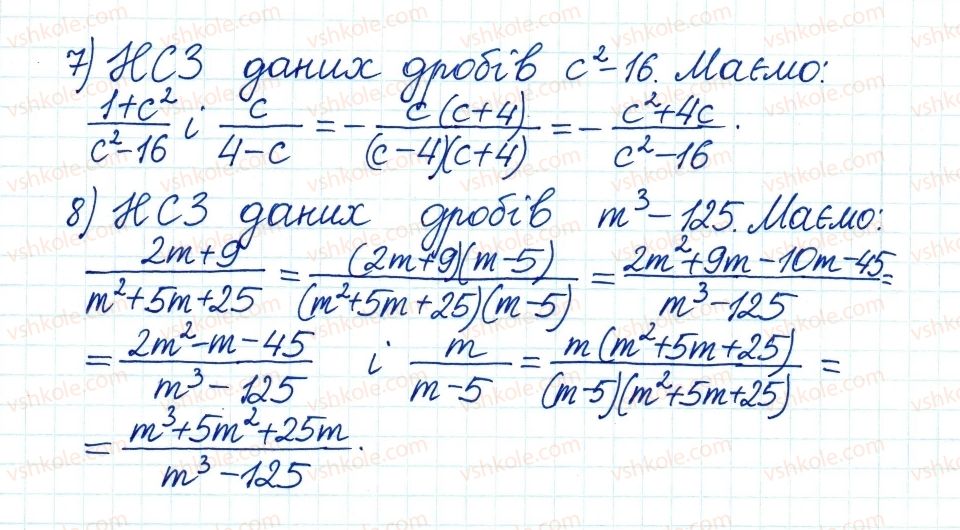 7) НСЗ даних дробів c²-16. Маємо:
(1+c²)/(c²-16) і c/(4-c) = - c(c+4)/((c-4)(c+4)) = - (c²+4c)/(c²-16).
8) НСЗ даних дробів m³-125. Маємо:
(2m+9)/(m²+5m+25) = (2m+9)(m-5)/((m²+5m+25)(m-5)) = (2m²+9m-10m-45)/(m³-125) =
= (2m²-m-45)/(m³-125) і m/(m-5) = m(m²+5m+25)/((m-5)(m²+5m+25)) =
= (m³+5m²+25m)/(m³-125).
vshkole.com